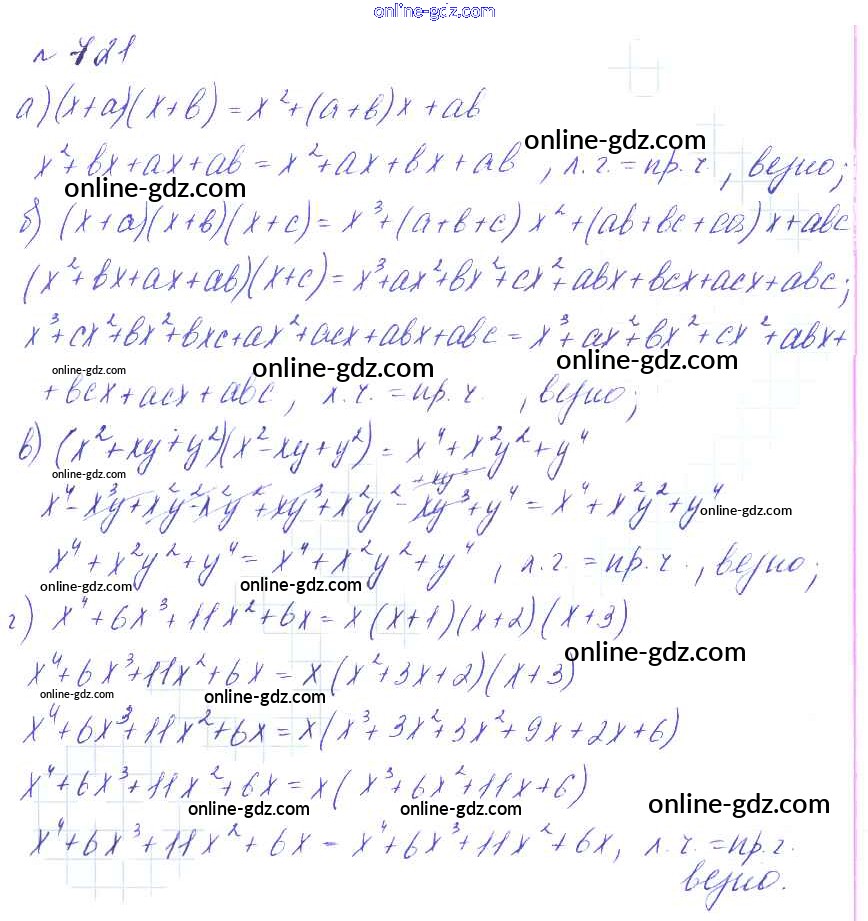 online-gdz.com
№ 721
а) (x+a)(x+b) = x²+(a+b)x+ab
online-gdz.com
x²+bx+ax+ab = x²+ax+bx+ab, л.ч. = пр.ч., верно;
online-gdz.com
б) (x+a)(x+b)(x+c) = x³+(a+b+c)x²+(ab+bc+ca)x+abc
(x²+bx+ax+ab)(x+c) = x³+ax²+bx²+cx²+abx+bcx+acx+abc;
x³+cx²+bx²+bxc+ax²+acx+abx+abc = x³+ax²+bx²+cx²+abx+
online-gdz.com online-gdz.com
+bcx+acx+abc, л.ч. = пр.ч., верно;
в) (x²+xy+y²)(x²-xy+y²) = x⁴+x²y²+y⁴
online-gdz.com
x⁴-x³y+x²y²-x²y²+xy³+x²y²-xy³+y⁴ = x⁴+x²y²+y⁴
online-gdz.com
x⁴+x²y²+y⁴ = x⁴+x²y²+y⁴, л.ч. = пр.ч., верно;
online-gdz.com online-gdz.com
г) x⁴+6x³+11x²+6x = x(x+1)(x+2)(x+3)
online-gdz.com
x⁴+6x³+11x²+6x = x(x²+3x+2)(x+3)
online-gdz.com online-gdz.com
x⁴+6x³+11x²+6x = x(x³+3x²+3x²+9x+2x+6)
x⁴+6x³+11x²+6x = x(x³+6x²+11x+6)
online-gdz.com online-gdz.com online-gdz.com
x⁴+6x³+11x²+6x = x⁴+6x³+11x²+6x, л.ч. = пр.ч.
верно.